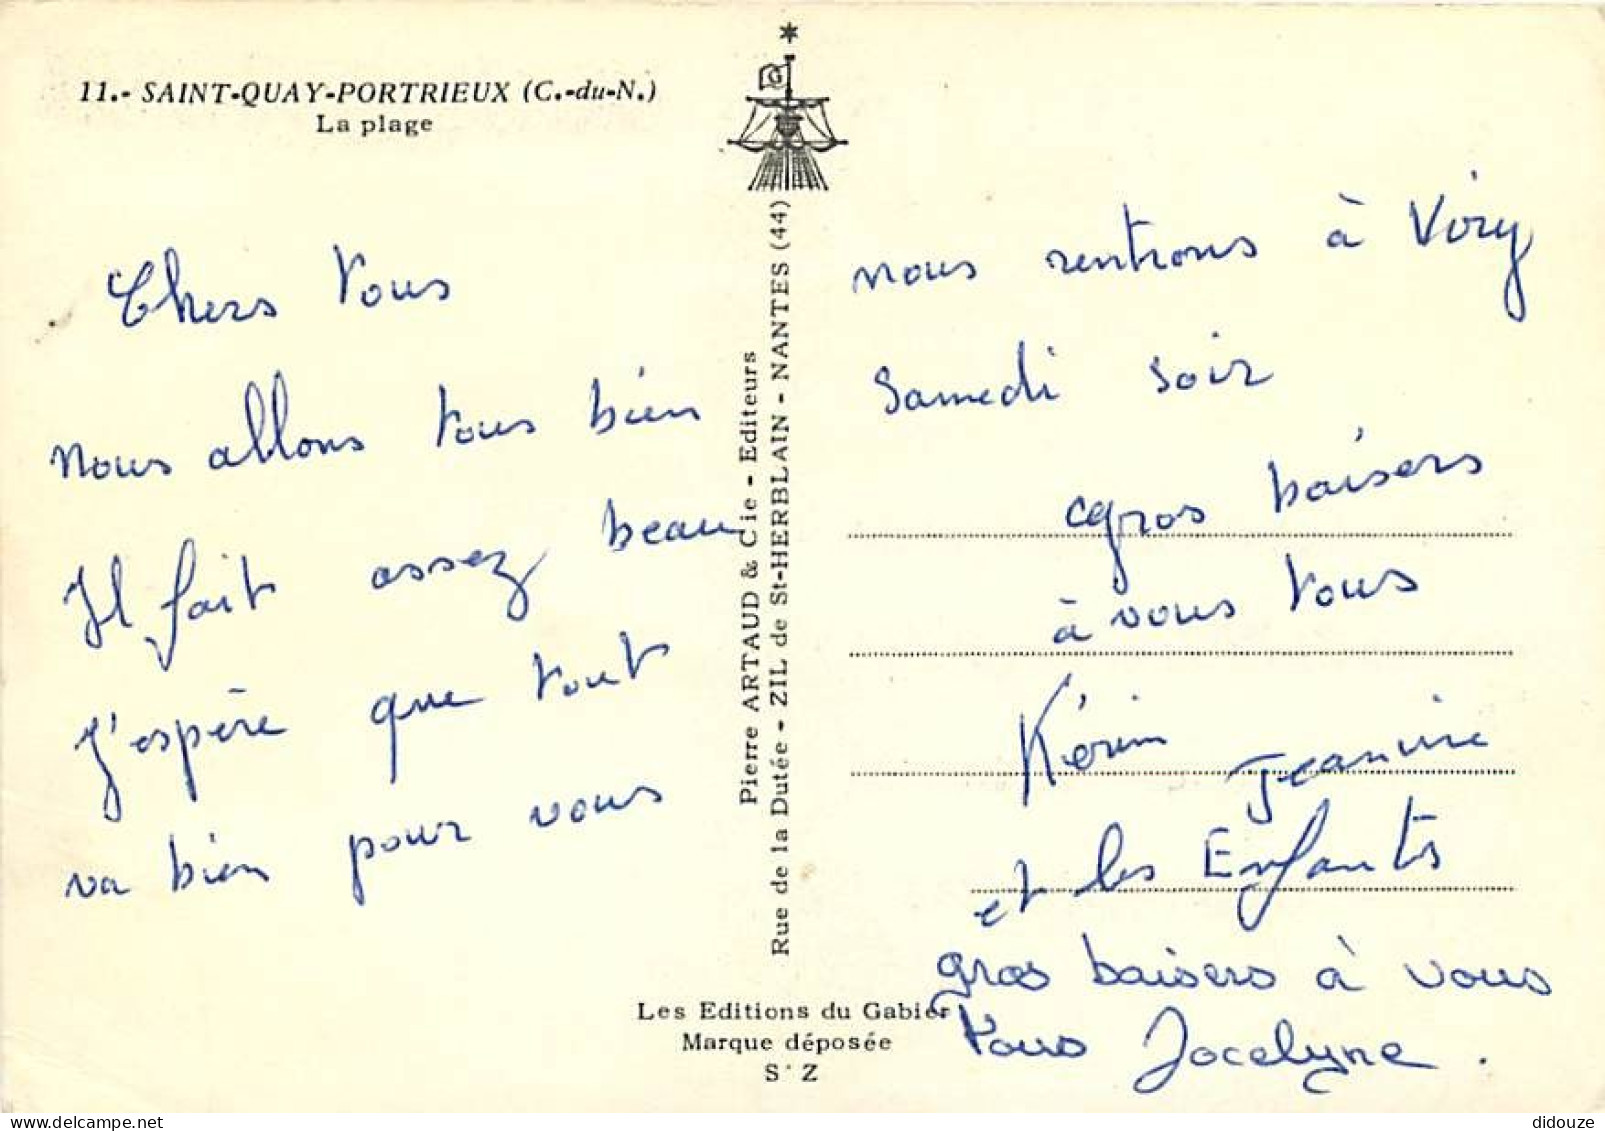 11.- SAINT-QUAY-PORTRIEUX (C.-du-N.)
La plage
Chers Tous
nous allons tous bien
Il fait assez beau
J'espère que tout
va bien pour vous
G
Pierre ARTAUD & Cie - Editeurs
Rue de la Dutée - ZIL de St-HERBLAIN - NANTES (44)
nous rentrons à Viry
Samedi soir
gros baisers
à vous tous
Kérim Jeannine
et les Enfants
gros baisers à vous
tous Jocelyne.
Les Editions du Gabier
Marque déposée
S Z
didouze